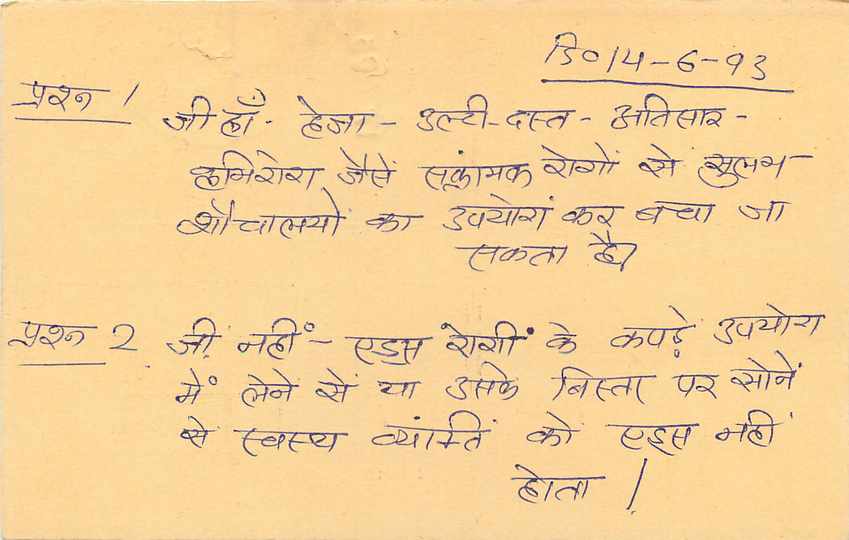 दि० 14-6-93
प्रश्न 1
जी हाँ - हेजा - उल्टी-दस्त - अतिसार -
कृमिरोग जैसें सक्रांमक रोगों से सुलभ
शौचालयों का उपयोग कर बचा जा
सकता है।
प्रश्न 2 जी नहीं - एड्स रोगी के कपड़े उपयोग
में लेने सें या उसके बिस्तर पर सोनें
से स्वस्थ व्यांक्ति को एड्स नहीं
होता।